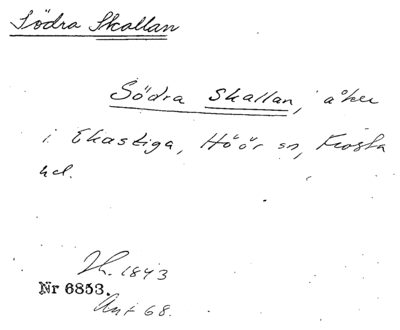 Södra Skallan
Södra Skallan, åker
i Ekastiga, Höör sn, Frosta
hd.
Lh. 1843
Nr 6853.
Akt 68.